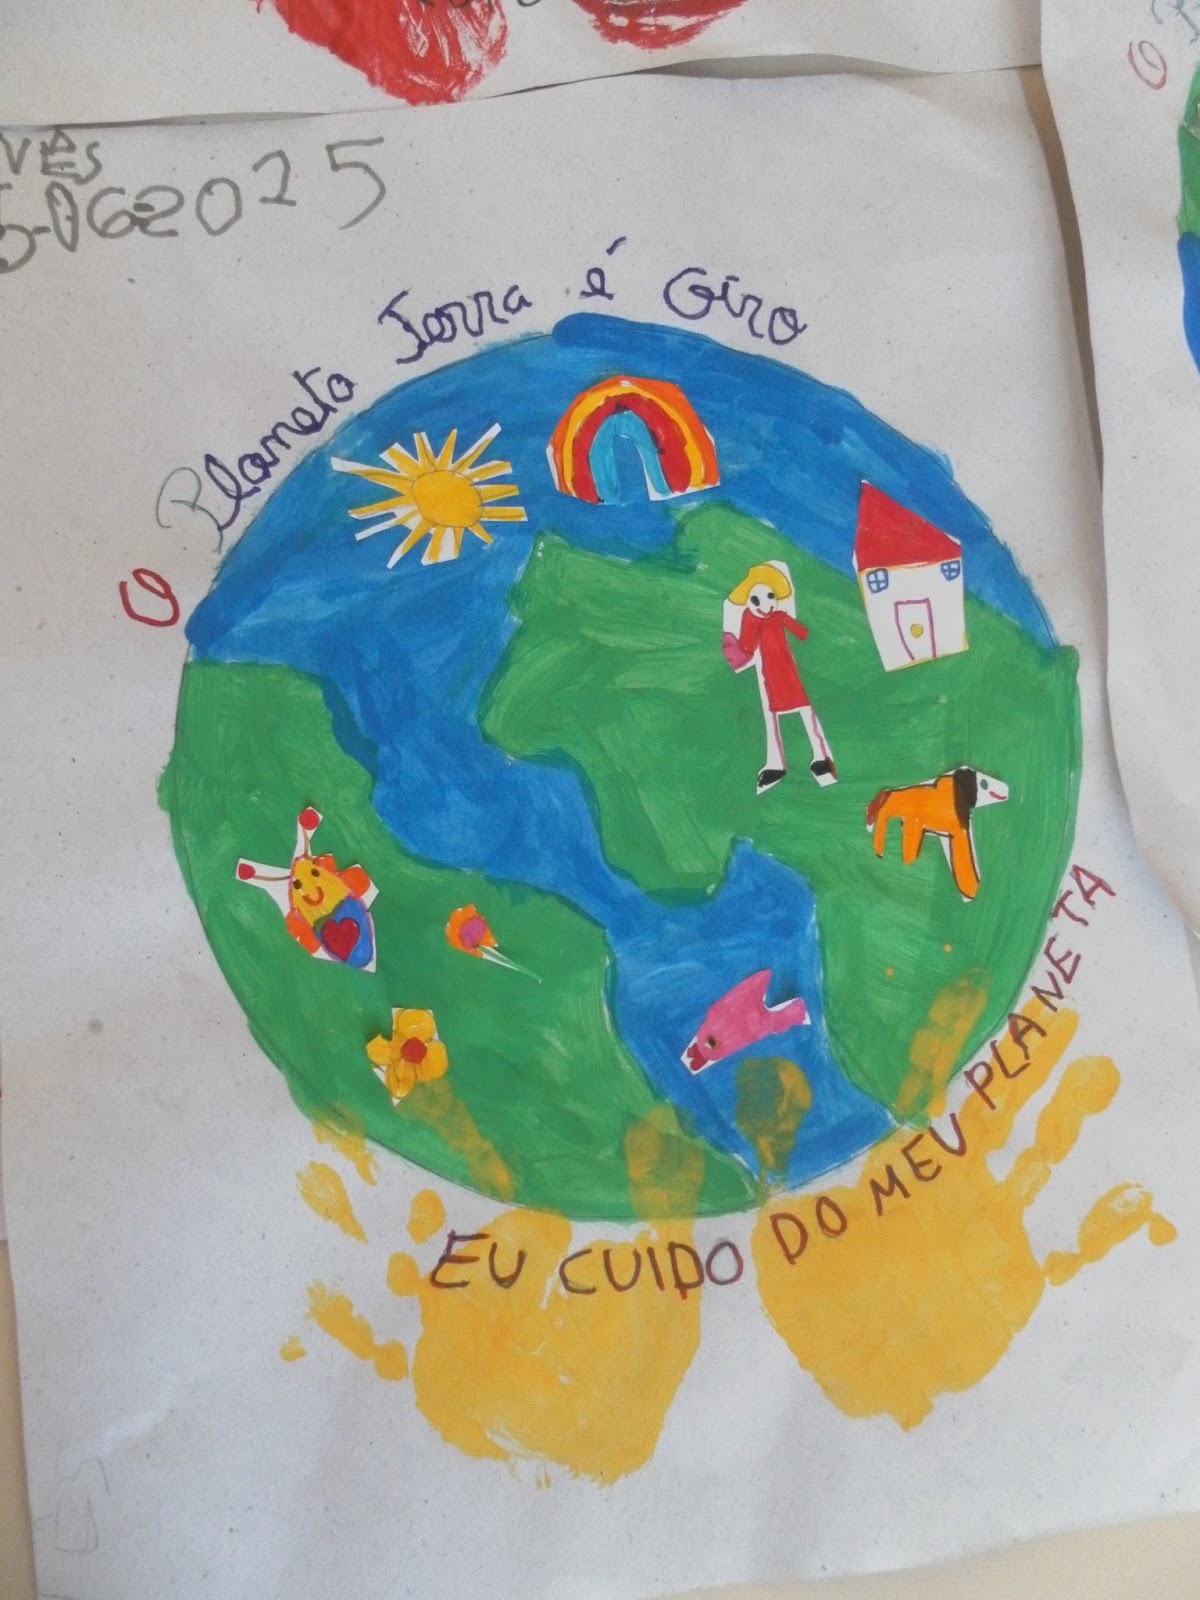 VES
5-062025
O Planeta Terra é Giro
EU CUIDO DO MEU PLANETA